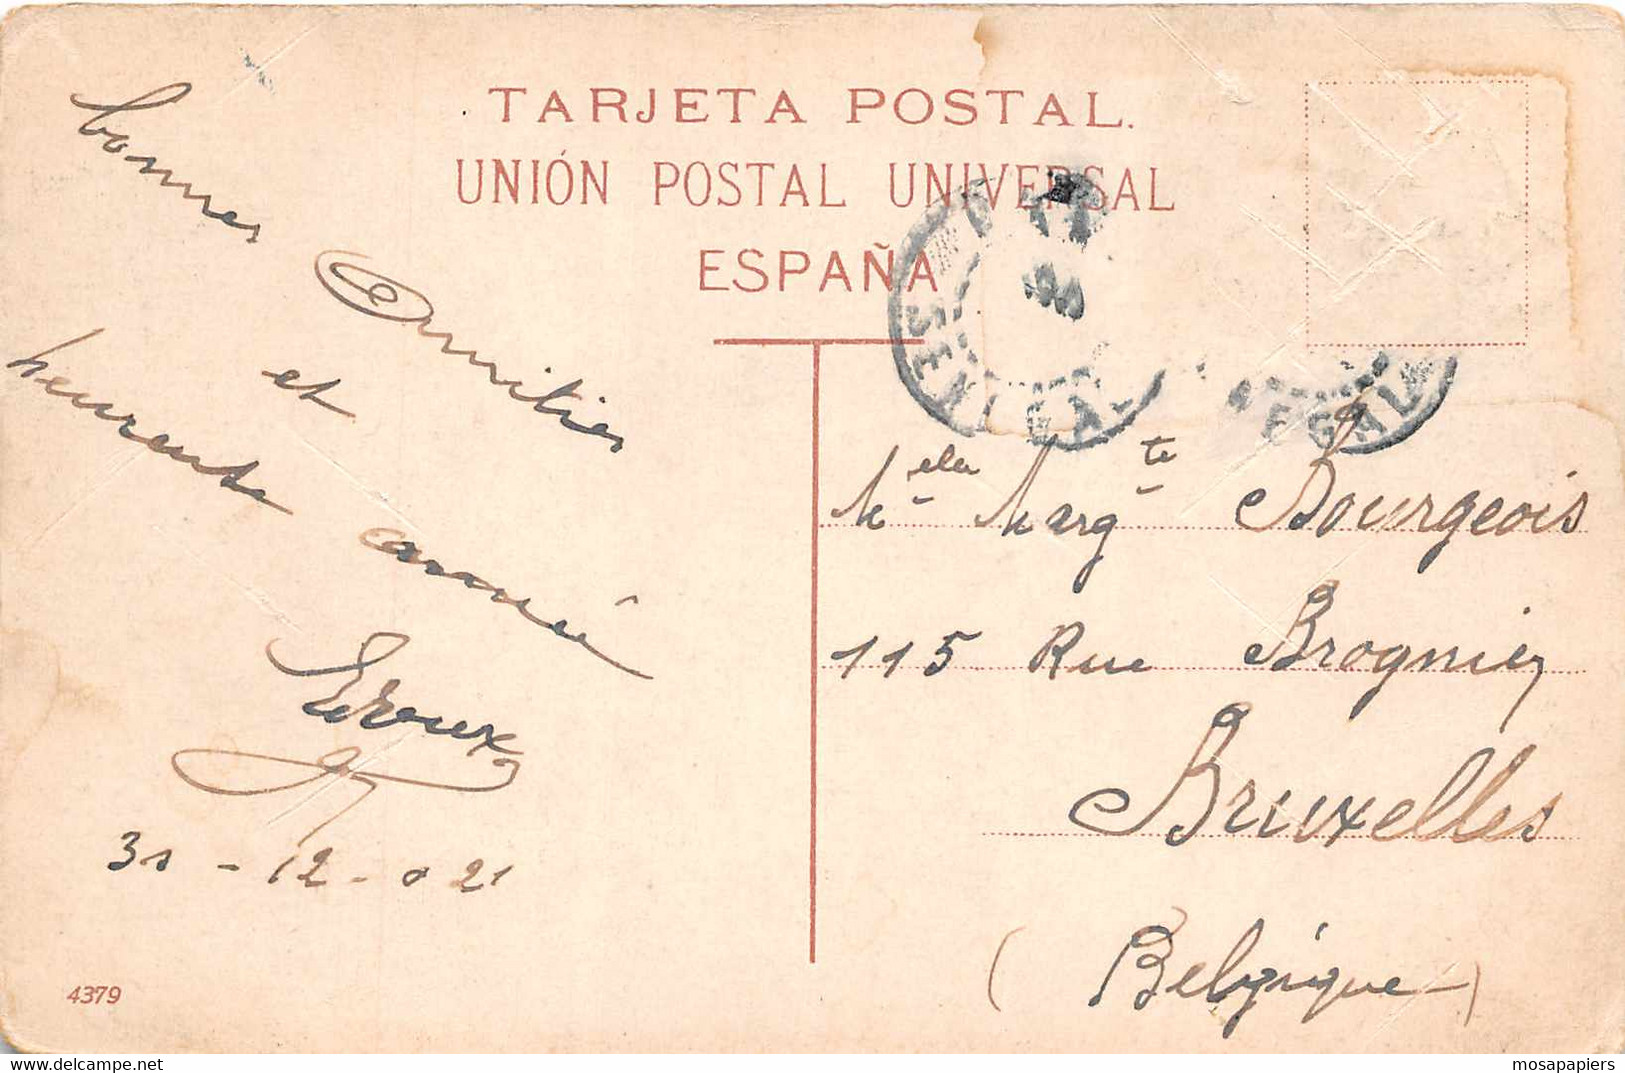 TARJETA POSTAL.
UNIÓN POSTAL UNIVERSAL
ESPAÑA
bonnes Amitiés
et
heureuse année
Leroux
31-12-021
4379
Melle Margte Bourgeois
115 Rue Brogniez
Bruxelles
(Belgique)
SENEGAL
mosapapiers